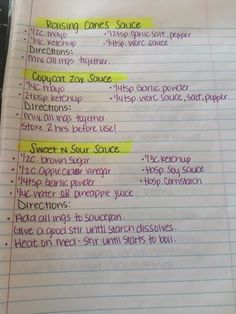 Raising Canes Sauce
• 1/2c. mayo • 1/2tsp garlic salt, pepper
• 1/4c ketchup • 1/4tsp. worc. sauce
Directions:
• Mix all ings together.
Copycat Zax Sauce
• 1/4c mayo • 1/4tsp garlic powder
• 2tbsp ketchup • 1/4tsp worc. sauce, salt, pepper
Directions:
• Mix all ings together.
Store 2 hrs before use!
Sweet N Sour Sauce
• 1/2c. brown sugar • 1/3c ketchup
• 1/2c. apple cider vinegar • tbsp Soy Sauce
• 1/4tsp garlic powder • tbsp Cornstarch
• 1/4c water OR pineapple juice
Directions:
• Add all ings to saucepan.
Give a good stir until starch dissolves.
• Heat on med - stir until starts to boil.